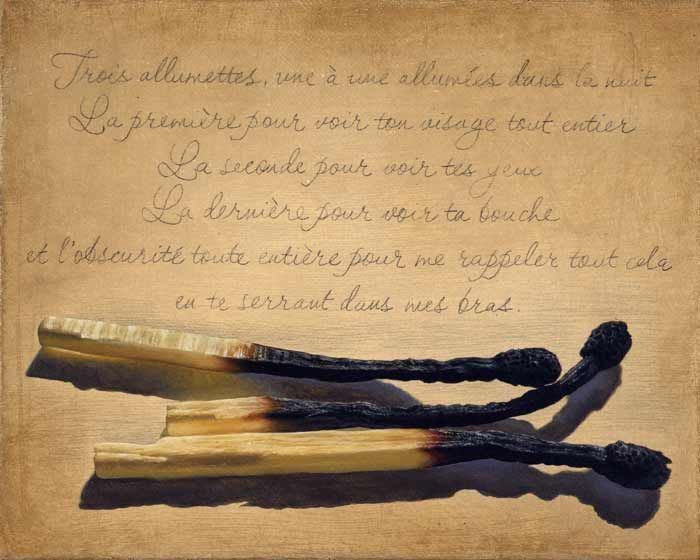 Trois allumettes, une à une allumées dans la nuit
La première pour voir ton visage tout entier
La seconde pour voir tes yeux
La dernière pour voir ta bouche
et l'obscurité toute entière pour me rappeler tout cela
en te serrant dans mes bras.